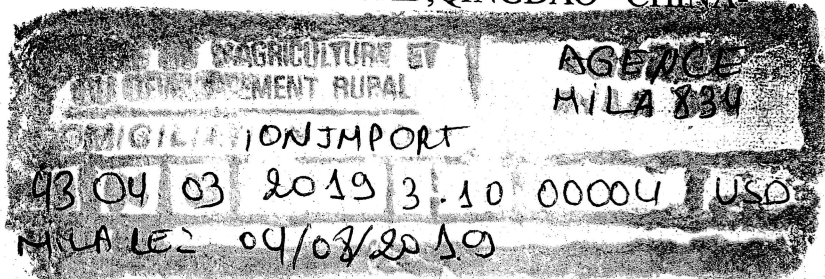 , QINGDAO CHINA
D'AGRICULTURE ET
DEVELOPPEMENT RURAL
AGENCE
MILA 834
DOMICILIATION IMPORT
43 04 03 2019 3 .10 00004 USD
MILA LE: 04/08/2019